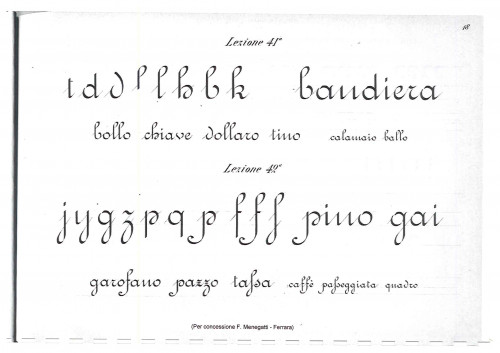 18
Lezione 41ª
t d d l l h b k bandiera
bollo chiave dollaro tino calamaio ballo
Lezione 42ª
j y g z p q p f f f pino gai
garofano pazzo taſsa caffè paſseggiata quadro
(Per concessione F. Menegatti - Ferrara)